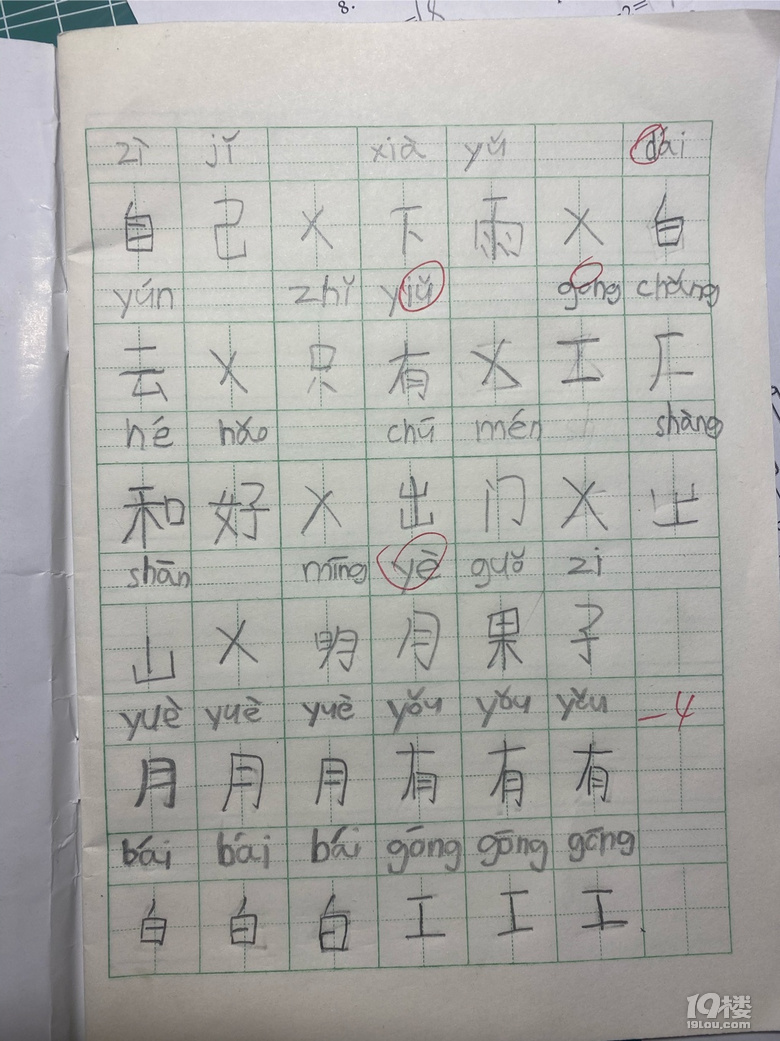 8.
zì jǐ xià yǔ dái
自 己 × 下 雨 × 白
yún zhǐ yiǔ gong chǎng
去 × 只 有 × 工 厂
hé hǎo chū mén shàng
和 好 × 出 门 × 上
shān míng yè guǒ zi
山 × 明 月 果 子
yuè yuè yuè yǒu yǒu yǒu -4
月 月 月 有 有 有
bái bái bái gōng gōng gōng
白 白 白 工 工 工
19楼
19lou.com